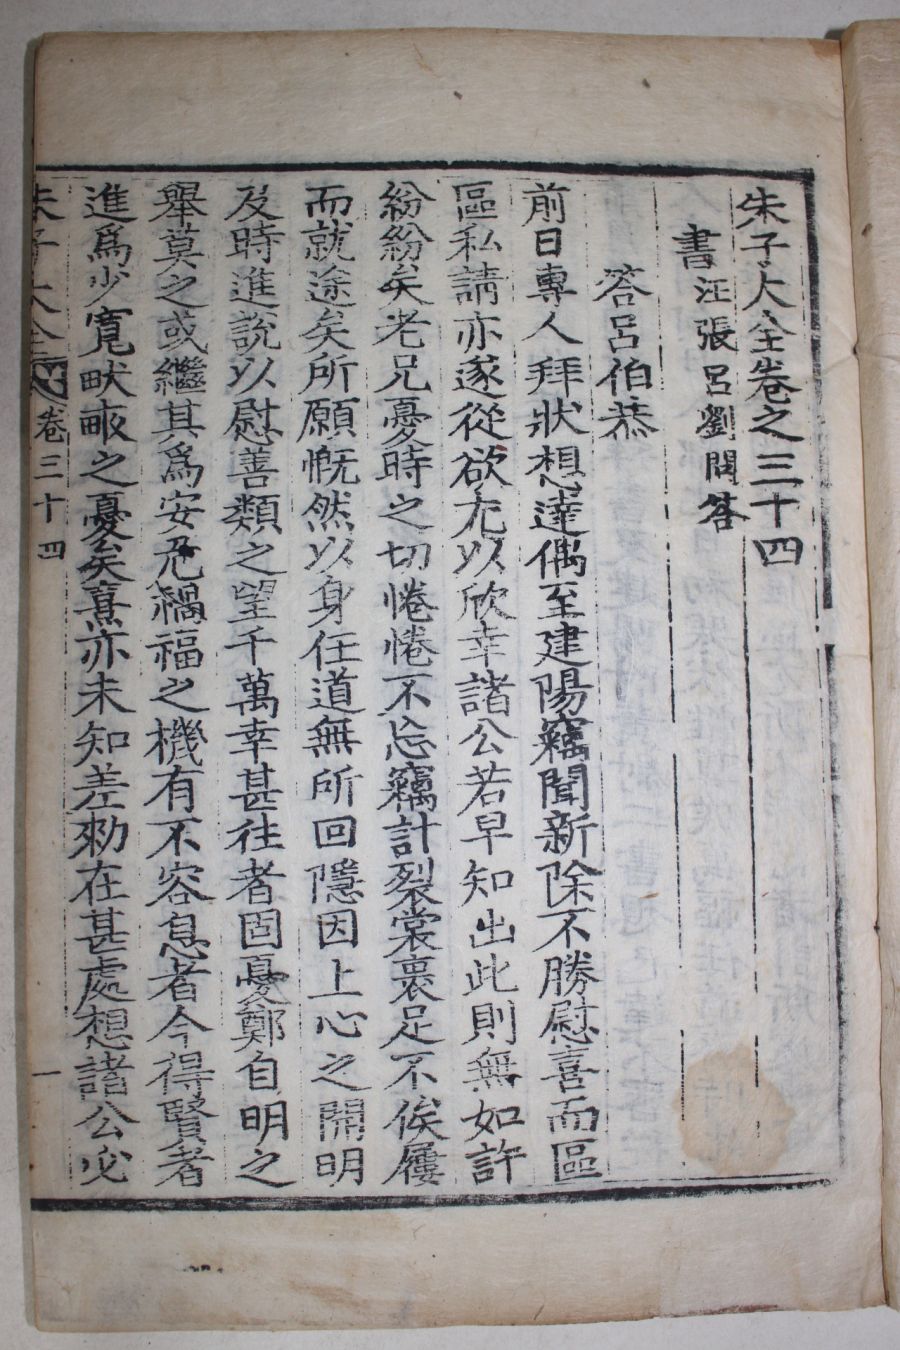 朱子大全卷之三十四
書汪張呂劉問答
答呂伯恭
前日專人拜狀想達偶至建陽竊聞新除不勝慰喜而區
區私請亦遂從欲尤以欣幸諸公若早知出此則無如許
紛紛矣老兄憂時之切惓惓不忘竊計裂裳裹足不俟屨
而就途矣所願慨然以身任道無所回隱因上心之開明
及時進說以慰善類之望千萬幸甚往者固憂鄭自明之
舉莫之或繼其爲安危禍福之機有不容息者今得賢者
進爲少寬畎畝之憂矣熹亦未知差勑在甚處想諸公必
朱子大全 卷三十四 一